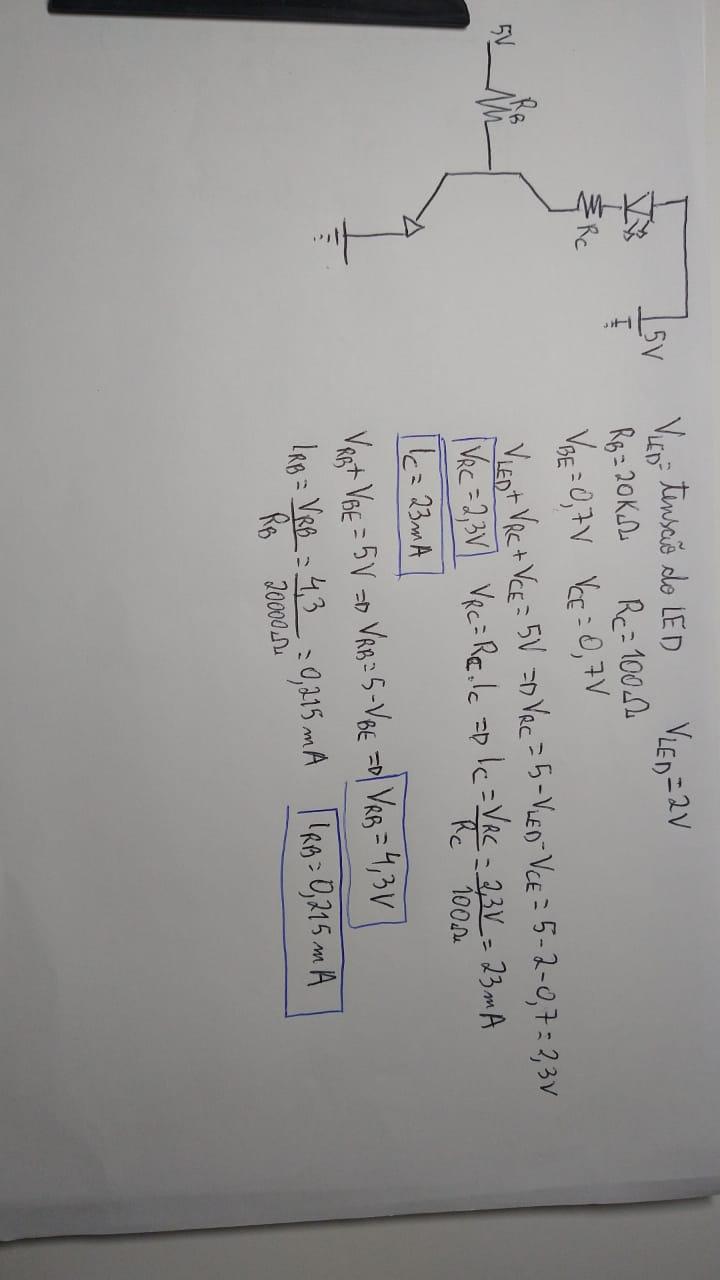 5V
RB
RC
5V
VLED = tensão do LED VLED = 2V
RB = 20KΩ RC = 100Ω
VBE = 0,7V VCE = 0,7V
VLED + VRC + VCE = 5V => VRC = 5 - VLED - VCE = 5 - 2 - 0,7 = 2,3V
VRC = 2,3V VRC = RC.IC => IC = VRC/RC = 2,3V/100Ω = 23mA
IC = 23mA
VRB + VBE = 5V => VRB = 5 - VBE => VRB = 4,3V
IRB = VRB/RB = 4,3/20000Ω = 0,215mA IRB = 0,215mA